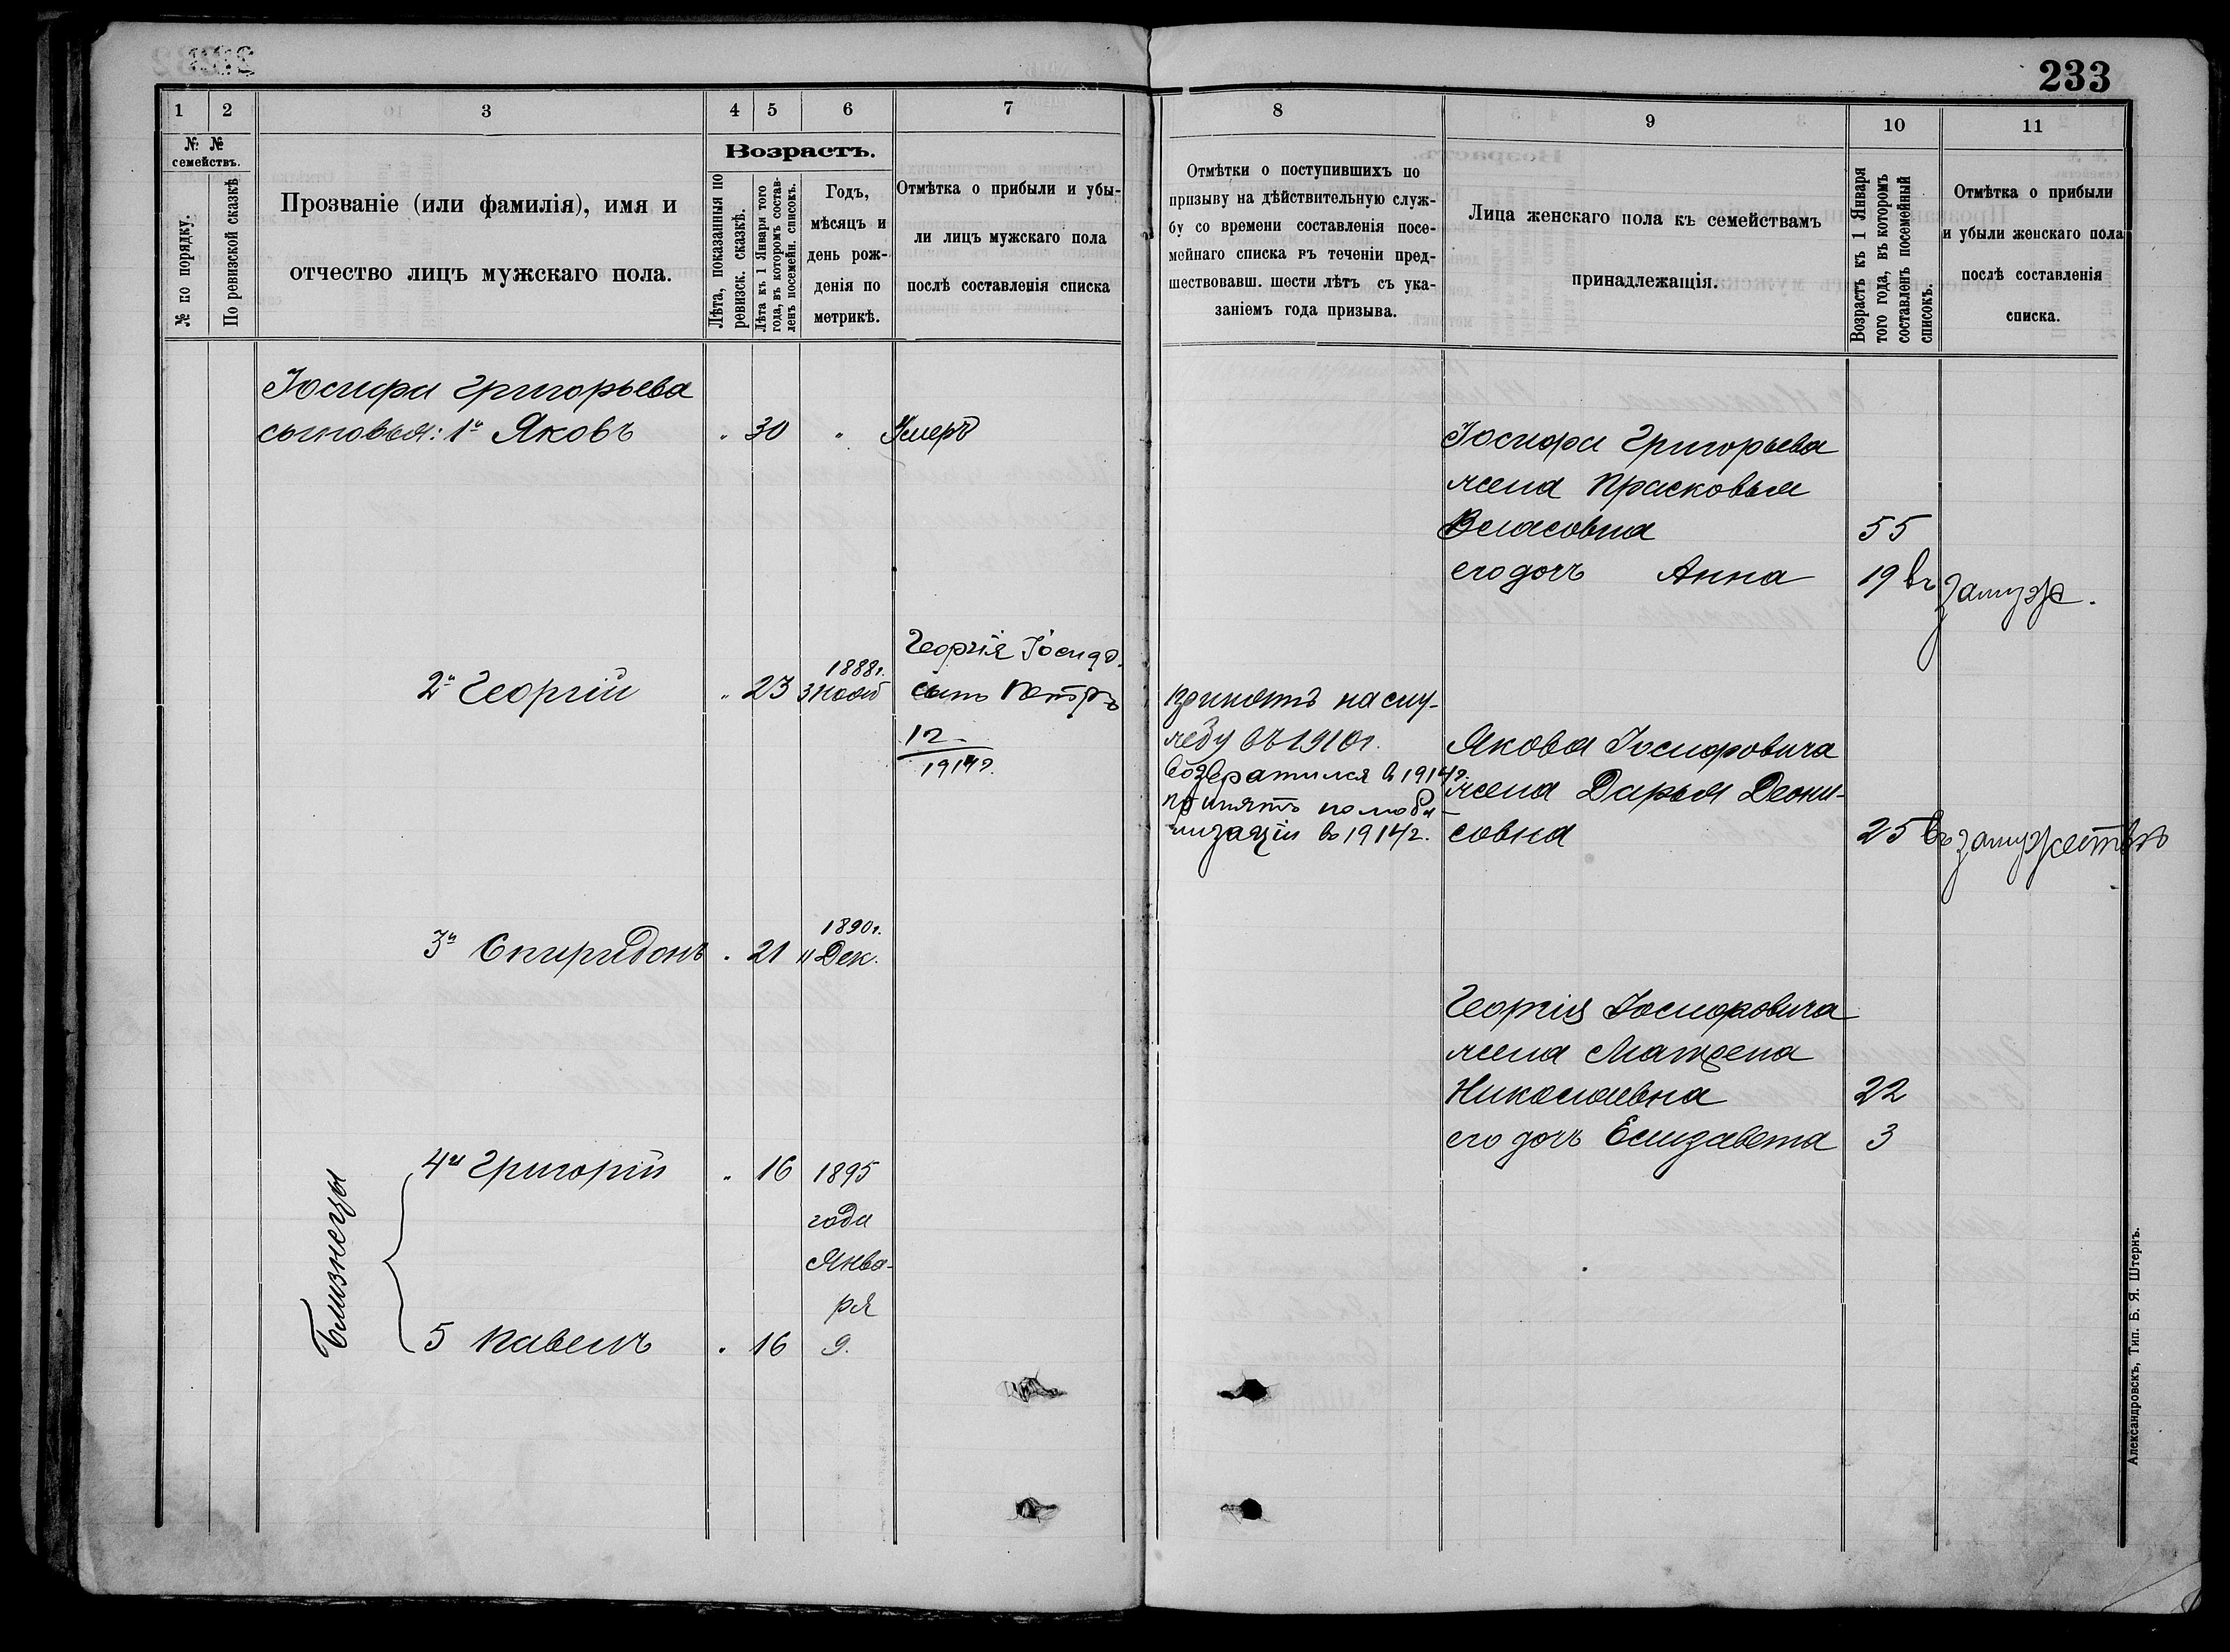 233
1 2 3 4 5 6 7
№ №
семействъ.
№ по порядку.
По ревизской сказкѣ
Прозваніе (или фамилія), имя и
отчество лицъ мужскаго пола.
Возрастъ.
Лѣта, показанныя по
ревизск. сказкѣ.
Лѣта къ 1 Января того
года, въ которомъ состав-
ленъ посемейн. списокъ.
Годъ,
мѣсяцъ и
день рож-
денія по
метрикѣ.
Отмѣтка о прибыли и убы-
ли лицъ мужскаго пола
послѣ составленія списка
Іосифа Григорьева
сыновья: 1й Яковъ " 30 " Умеръ
2й Георгій " 23 1888г.
3 Нояб
Георгія Іосиф.
сынъ Петръ
12
1914г.
3й Спиридонъ " 21 1890г.
11 Дек.
Близнецы
4й Григорій " 16 1895
года
Янва-
ря
5 Павелъ " 16 9.
8 9 10 11
Отмѣтки о поступившихъ по
призыву на дѣйствительную служ-
бу со времени составленія посе-
мейнаго списка въ теченіи пред-
шествовавш. шести лѣтъ съ ука-
заніемъ года призыва.
Лица женскаго пола къ семействамъ
принадлежащія.
Возрастъ къ 1 Января
того года, въ которомъ
составленъ посемейный
списокъ.
Отмѣтка о прибыли
и убыли женскаго пола
послѣ составленія
списка.
Іосифа Григорьева
жена Прасковья
Власовна 55
его дочь Анна 19 въ замуж.
принятъ на слу-
жбу въ 1910г.
Возвратился в 1914г.
принятъ по моби-
лизаціи въ 1914г.
Якова Іосифовича
жена Дарья Деони-
совна 25 въ замужествѣ
Георгія Іосифовича
жена Матрена
Николаевна 22
его дочь Елизавета 3
Александровскъ, Тип. Б. Я. Штернъ.